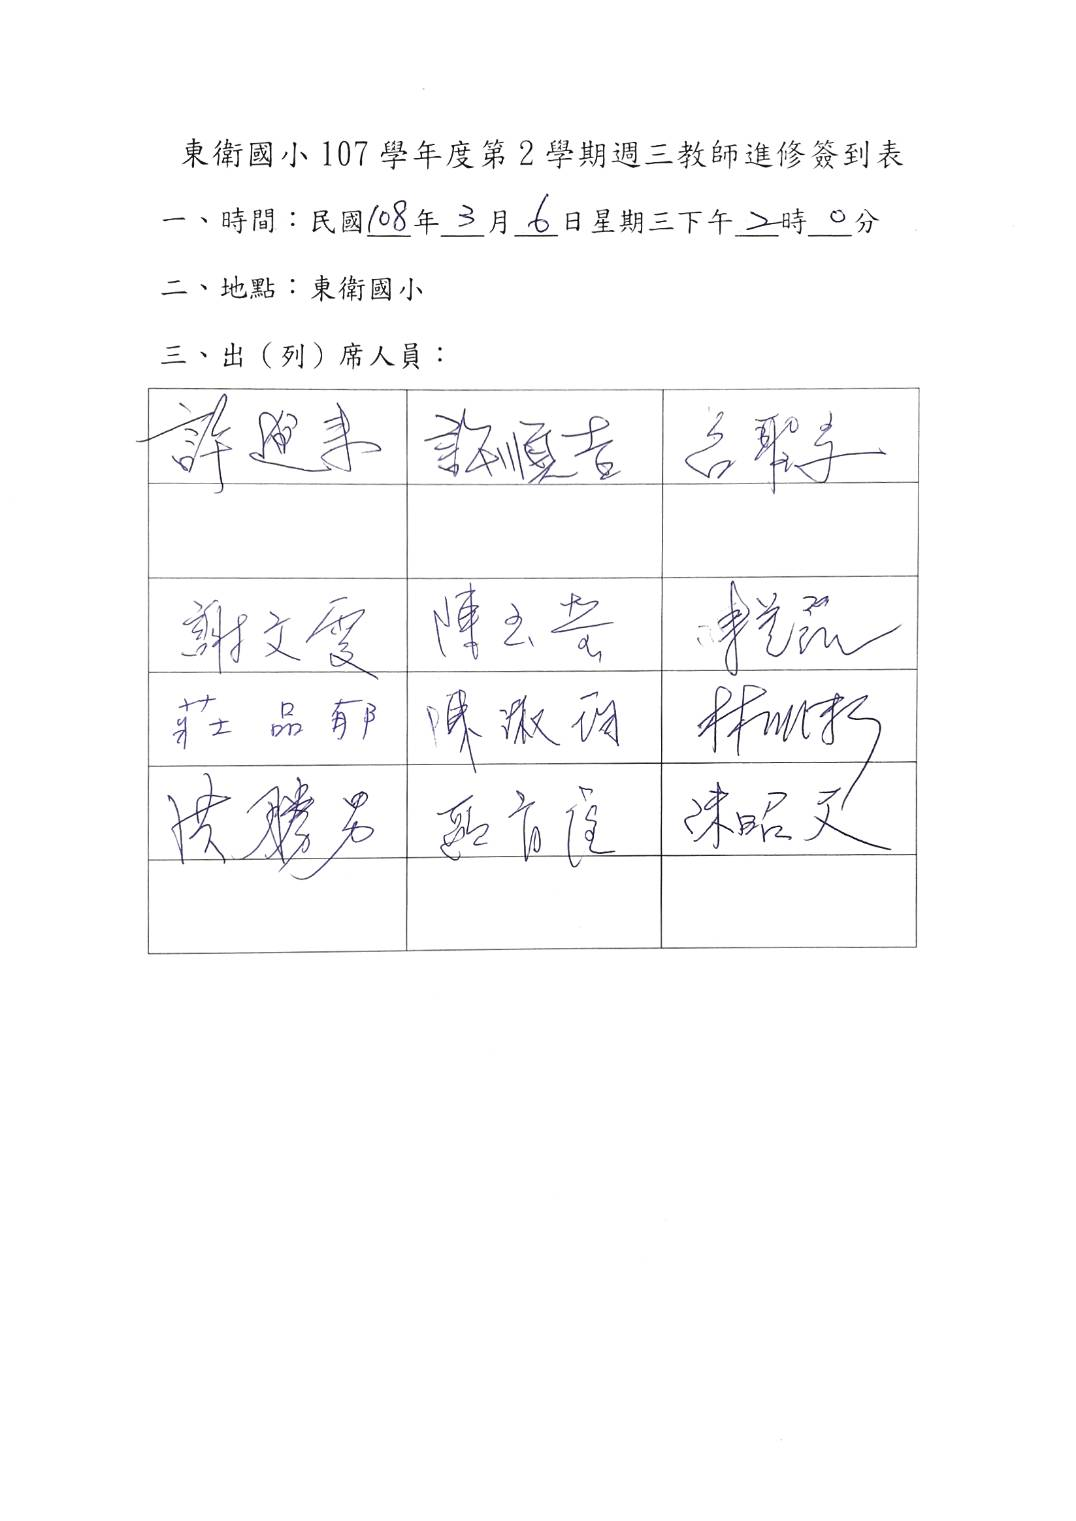 東衛國小107學年度第2學期週三教師進修簽到表
一、時間：民國108年3月6日星期三下午2時0分
二、地點：東衛國小
三、出（列）席人員：
許 許順吉 呂
謝文雯 陳玉 陳
莊品郁 陳淑 林
洪勝男 郭 陳昭文